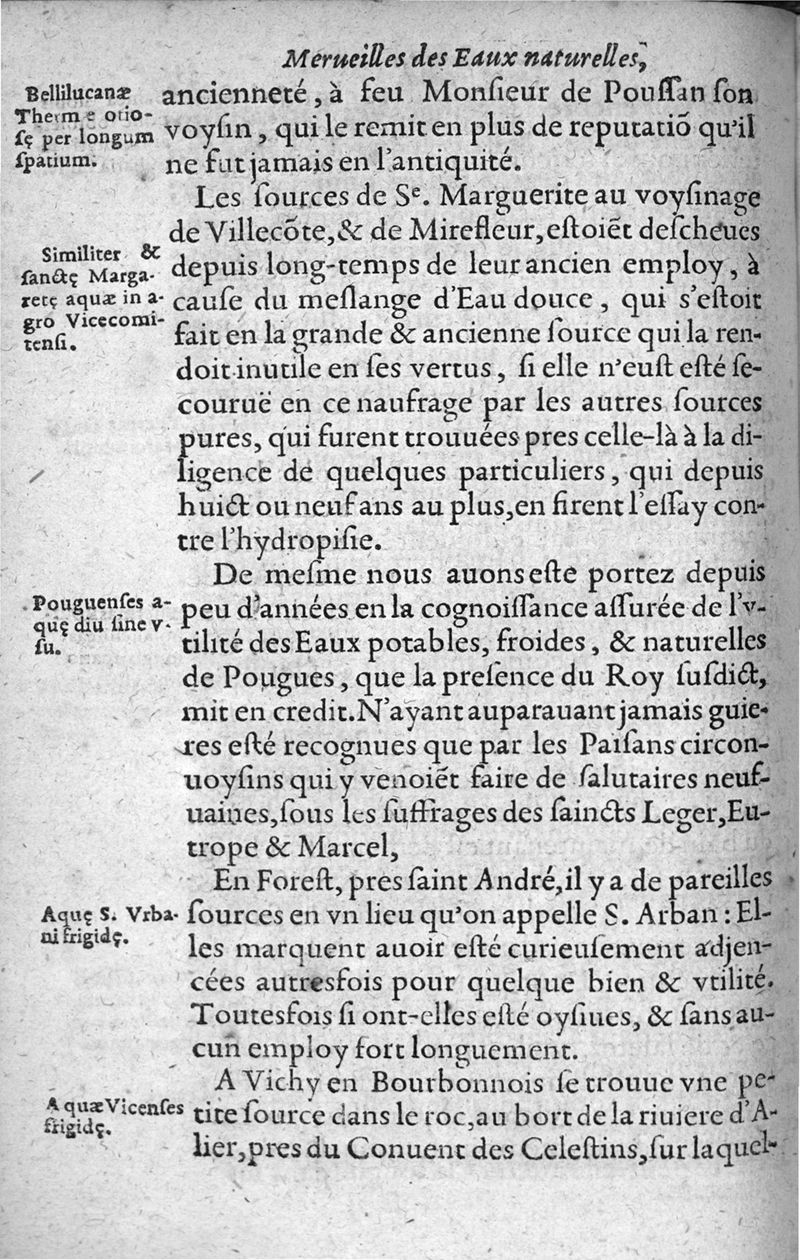 Merueilles des Eaux naturelles,
Bellilucanæ
Therm e otio-
ſę per longum
ſpatium.
ancienneté, à feu Monſieur de Pouſſan ſon
voyſin, qui le remit en plus de reputatiõ qu'il
ne fut jamais en l'antiquité.
Les ſources de Sᵉ. Marguerite au voyſinage
de Villecõte, & de Mirefleur, eſtoiẽt deſcheues
Similiter &
ſanctę Marga-
retę aquæ in a-
gro Vicecomi-
tenſi.
depuis long-temps de leur ancien employ, à
cauſe du meſlange d'Eau douce, qui s'eſtoit
fait en la grande & ancienne ſource qui la ren-
doit inutile en ſes vertus, ſi elle n'euſt eſté ſe-
couruë en ce naufrage par les autres ſources
pures, qui furent trouuées pres celle-là à la di-
ligence de quelques particuliers, qui depuis
huict ou neuf ans au plus, en firent l'eſſay con-
tre l'hydropiſie.
De meſme nous auons eſte portez depuis
Pouguenſes a-
quę diu ſine v-
ſu.
peu d'années en la cognoiſſance aſſurée de l'v-
tilité des Eaux potables, froides, & naturelles
de Pougues, que la preſence du Roy ſuſdict,
mit en credit. N'ayant auparauant jamais guie-
res eſté recognues que par les Paiſans circon-
uoyſins qui y venoiẽt faire de ſalutaires neuf-
uaines, ſous les ſuffrages des ſaincts Leger, Eu-
trope & Marcel,
En Foreſt, pres ſaint André, il y a de pareilles
Aquę S. Vrba-
ni frigidę.
ſources en vn lieu qu'on appelle S. Arban : El-
les marquent auoir eſté curieuſement adjen-
cées autresfois pour quelque bien & vtilité.
Toutesfois ſi ont-elles eſté oyſiues, & ſans au-
cun employ fort longuement.
A Vichy en Bourbonnois ſe trouue vne pe-
Aquæ Vicenſes
frigidę.
tite ſource dans le roc, au bort de la riuiere d'A-
lier, pres du Conuent des Celeſtins, ſur laquel-